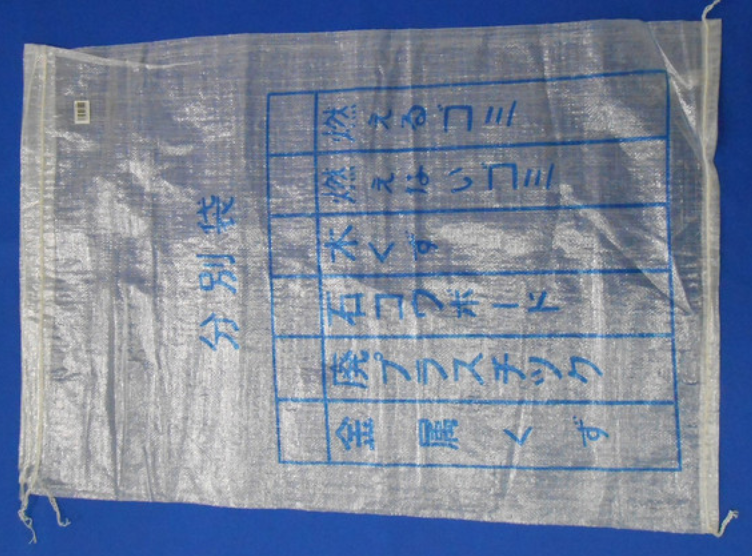 分別袋
燃えるゴミ
燃えないゴミ
木くず
石コウボード
廃プラスチック
金属くず